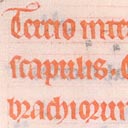 Tercio inter
scapulis. 
brachiorum